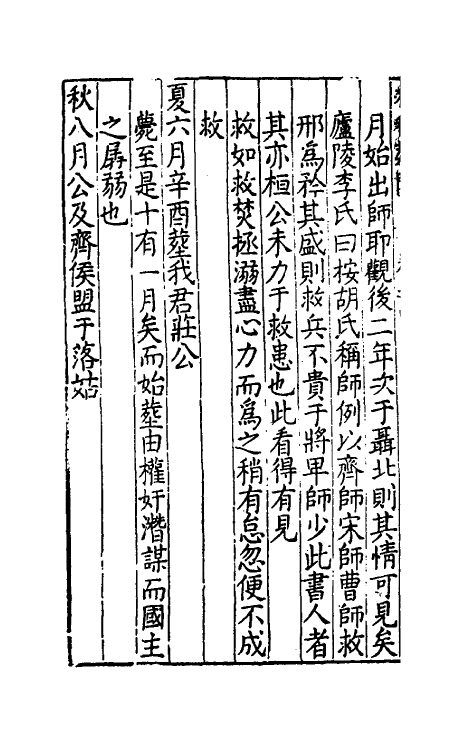 月始出師耶觀後二年次于聶北則其情可見矣
廬陵李氏曰按胡氏稱師例以齊師宋師曹師救
邢為矜其盛則救兵不貴于將卑師少此書人者
其亦桓公未力于救患也此看得有見
救如救焚拯溺盡心力而為之稍有怠忽便不成
救
夏六月辛酉塟我君莊公
薨至是十有一月矣而始塟由權奸潛謀而國主
之孱弱也
秋八月公及齊侯盟于落姑